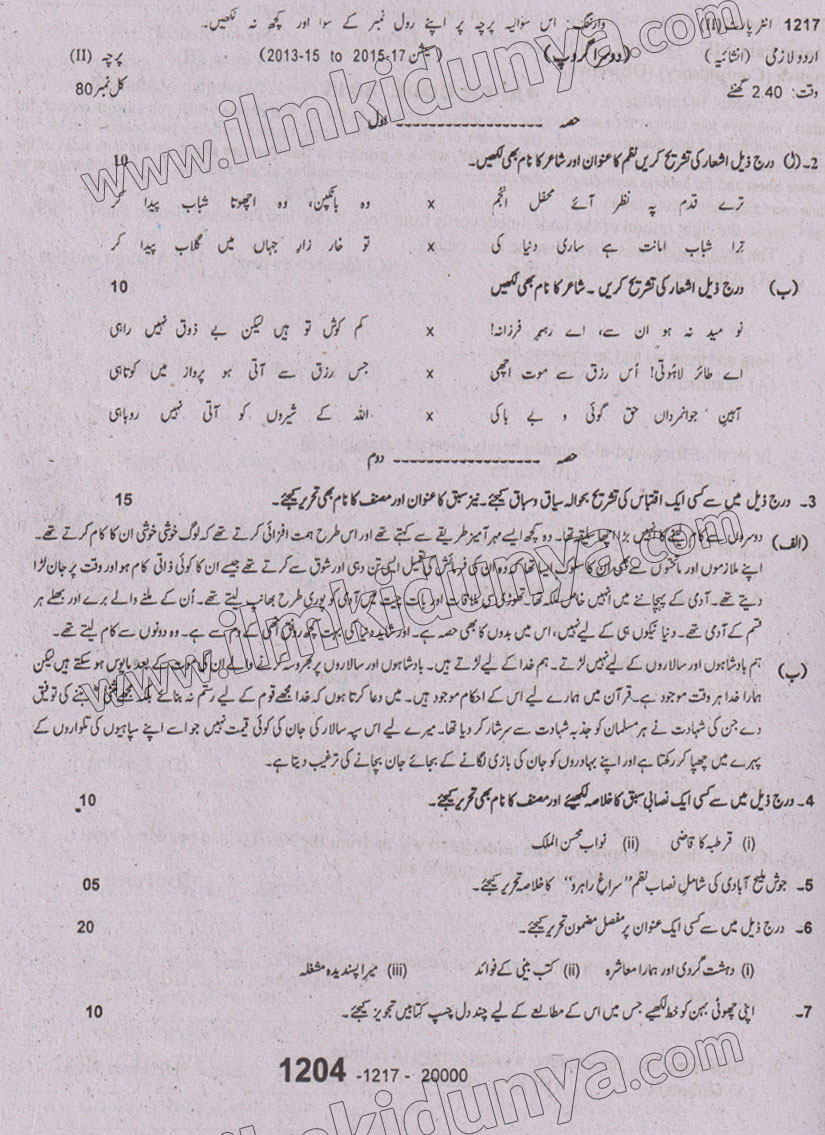 1217 انٹر پارٹ (II) وارننگ: اس سوالیہ پرچہ پر اپنے رول نمبر کے سوا اور کچھ نہ لکھیں۔
اردو لازمی (انشائیہ) (دوسرا گروپ) (سیشن 17-2015 to 2013-15) پرچہ (II)
وقت: 2.40 گھنٹے کل نمبر 80
حصہ ------------------- اول
2۔ (ا) درج ذیل اشعار کی تشریح کریں نظم کا عنوان اور شاعر کا نام بھی لکھیں۔ 10
ترے قدم پہ نظر آئے محفل انجم x وہ بانکپن، وہ اچھوتا شباب پیدا کر
ترا شباب امانت ہے ساری دنیا کی x تو خار زار جہاں میں گلاب پیدا کر
(ب) درج ذیل اشعار کی تشریح کریں ۔ شاعر کا نام بھی لکھیں 10
نو مید نہ ہو ان سے، اے رہبر فرزانہ! x کم کوش تو ہیں لیکن بے ذوق نہیں راہی
اے طائر لاہوتی! اُس رزق سے موت اچھی x جس رزق سے آتی ہو پرواز میں کوتاہی
آئینِ جوانمرداں حق گوئی و بے باکی x اللہ کے شیروں کو آتی نہیں روباہی
حصہ ------------------- دوم
3۔ درج ذیل میں سے کسی ایک اقتباس کی تشریح بحوالہ سیاق و سباق کیجئے۔ نیز سبق کا عنوان اور مصنف کا نام بھی تحریر کیجئے۔ 15
(الف) دوسروں سے کام لینے کا انہیں بڑا اچھا سلیقہ تھا۔ وہ کچھ ایسے مہر آمیز طریقے سے کہتے تھے اور اس طرح ہمت افزائی کرتے تھے کہ لوگ خوشی خوشی ان کا کام کرتے تھے۔
اپنے ملازموں اور ماتحتوں سے بھی ان کا سلوک ایسا تھا کہ وہ ان کی فرمائش کی تعمیل ایسی تن دہی اور شوق سے کرتے تھے جیسے ان کا کوئی ذاتی کام ہو اور وقت پر جان لڑا
دیتے تھے۔ آدمی کے پہچاننے میں انہیں خاص ملکہ تھا۔ تھوڑی سی ملاقات اور بات چیت میں آدمی کو پوری طرح بھانپ لیتے تھے۔ اُن کے ملنے والے برے اور بھلے ہر
قسم کے آدمی تھے۔ دنیا نیکوں ہی کے لیے نہیں، اس میں بدوں کا بھی حصہ ہے۔ اور شاید دنیا کی بہت کچھ رونق انھی کے دم سے ہے۔ وہ دونوں سے کام لیتے تھے۔
(ب) ہم بادشاہوں اور سالاروں کے لیے نہیں لڑتے۔ ہم خدا کے لیے لڑتے ہیں۔ بادشاہوں اور سالاروں پر بھروسہ کرنے والے ان کی موت کے بعد مایوس ہو سکتے ہیں لیکن
ہمارا خدا ہر وقت موجود ہے۔ قرآن میں ہمارے لیے اس کے احکام موجود ہیں۔ میں دعا کرتا ہوں کہ خدا مجھے قوم کے لیے رستم نہ بنائے بلکہ مجھے مثنیٰ بننے کی توفیق
دے جن کی شہادت نے ہر مسلمان کو جذبہ شہادت سے سرشار کر دیا تھا۔ میرے لیے اس سپہ سالار کی جان کی کوئی قیمت نہیں جو اسے اپنے سپاہیوں کی تلواروں کے
پہرے میں چھپا کر رکھتا ہے اور اپنے بہادروں کو جان کی بازی لگانے کے بجائے جان بچانے کی ترغیب دیتا ہے۔
4۔ درج ذیل میں سے کسی ایک نصابی سبق کا خلاصہ لکھیئے اور مصنف کا نام بھی تحریر کیجئے۔ 10
(i) قرطبہ کا قاضی (ii) نواب محسن الملک
5۔ جوش ملیح آبادی کی شامل نصاب نظم "سراغ راہرو" کا خلاصہ تحریر کیجئے۔ 05
6۔ درج ذیل میں سے کسی ایک عنوان پر مفصل مضمون تحریر کیجئے۔ 20
(i) دہشت گردی اور ہمارا معاشرہ (ii) کتب بینی کے فوائد (iii) میرا پسندیدہ مشغلہ
7۔ اپنی چھوٹی بہن کو خط لکھیے جس میں اس کے مطالعے کے لیے چند دل چسپ کتابیں تجویز کیجئے۔ 10
1204 -1217- 20000
www.ilmkidunya.com
www.ilmkidunya.com
www.ilmkidunya.com